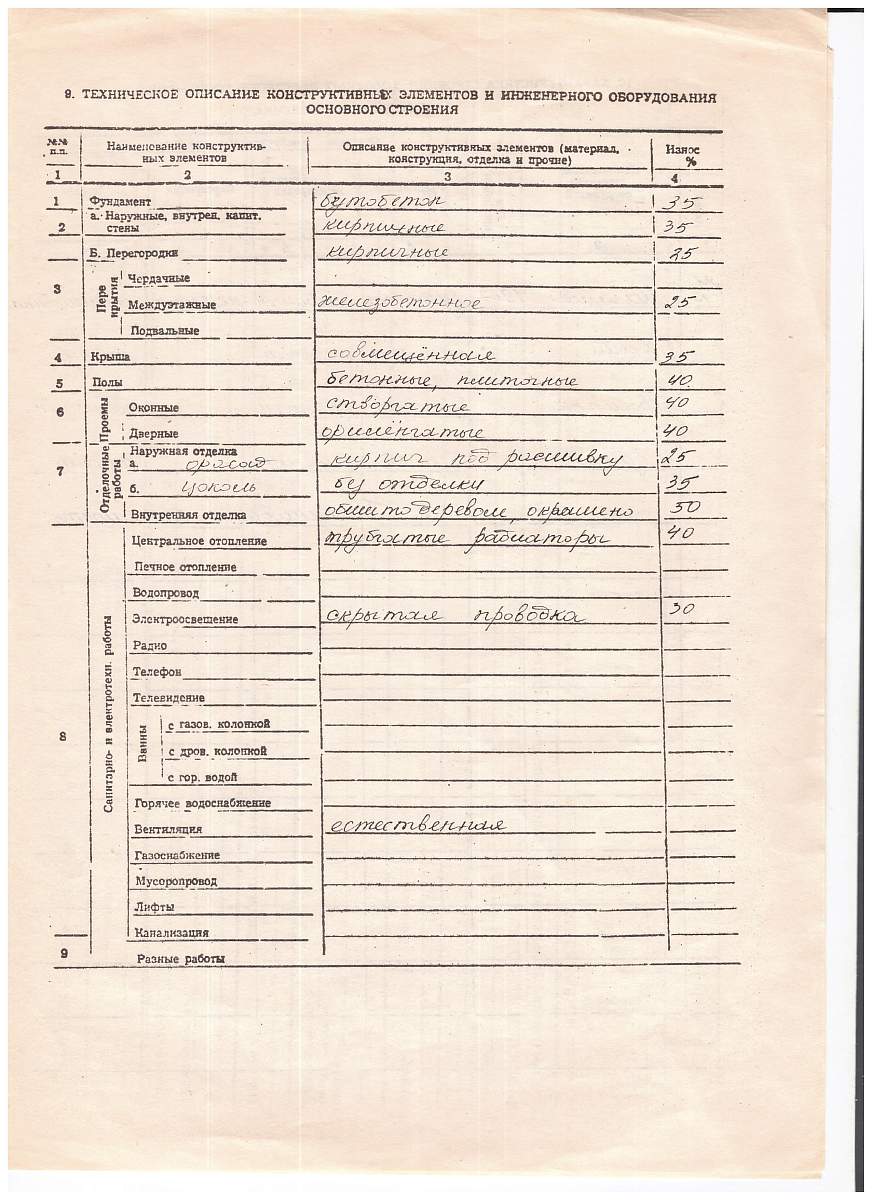 9. ТЕХНИЧЕСКОЕ ОПИСАНИЕ КОНСТРУКТИВНЫХ ЭЛЕМЕНТОВ И ИНЖЕНЕРНОГО ОБОРУДОВАНИЯ
ОСНОВНОГО СТРОЕНИЯ
№№ п.п. Наименование конструктивных элементов Описание конструктивных элементов (материал, конструкция, отделка и прочие) Износ %
1 2 3 4
1 Фундамент бутобетон 35
2 а. Наружные, внутрен. капит. стены кирпичные 35
Б. Перегородки кирпичные 25
3 Перекрытия Чердачные
Междуэтажные железобетонное 25
Подвальные
4 Крыша совмещённая 35
5 Полы бетонные, плиточные 40
6 Проемы Оконные створчатые 40
Дверные 40
7 Отделочные работы Наружная отделка
а. фасад кирпич под расшивку 25
б. цоколь бу отделки 35
Внутренняя отделка обшито деревом, окрашено 50
8 Санитарно- и электротехн. работы Центральное отопление трубчатые радиаторы 40
Печное отопление
Водопровод
Электроосвещение скрытая проводка 30
Радио
Телефон
Телевидение
Ванны с газов. колонкой
с дров. колонкой
с гор. водой
Горячее водоснабжение
Вентиляция естественная
Газоснабжение
Мусоропровод
Лифты
Канализация
9 Разные работы